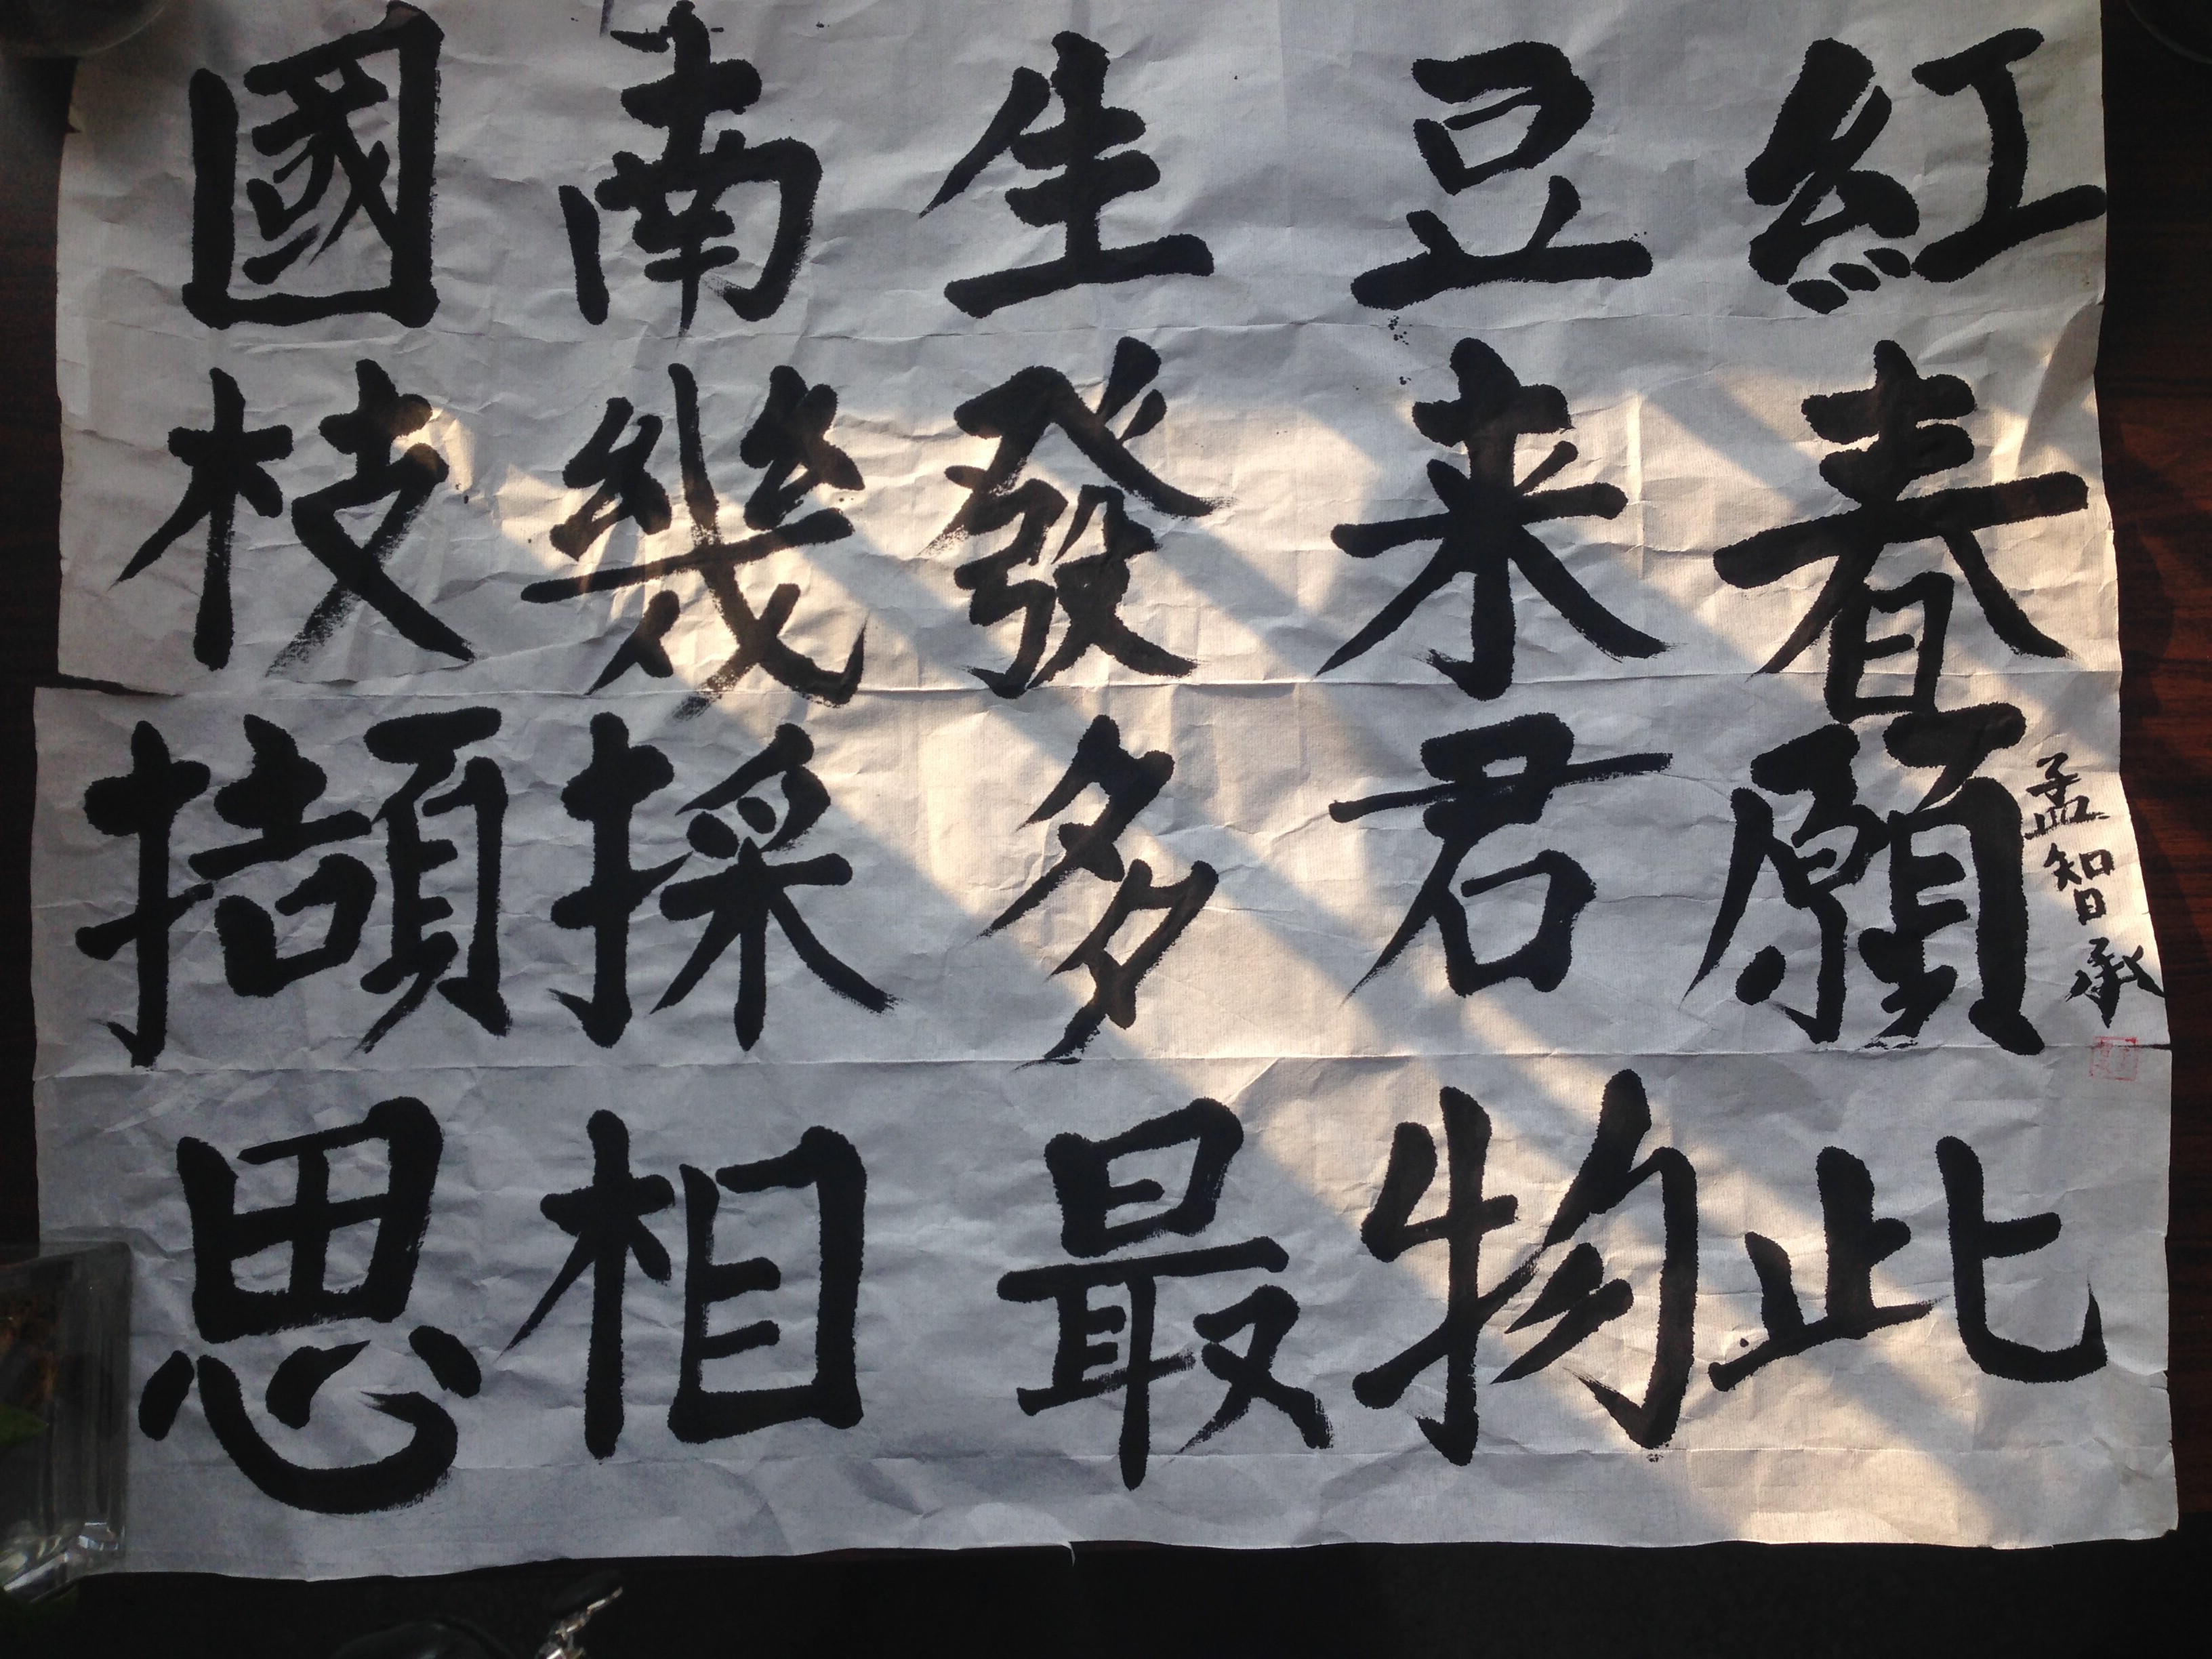 紅豆生南國
春来發幾枝
願君多採擷
此物最相思
孟智承